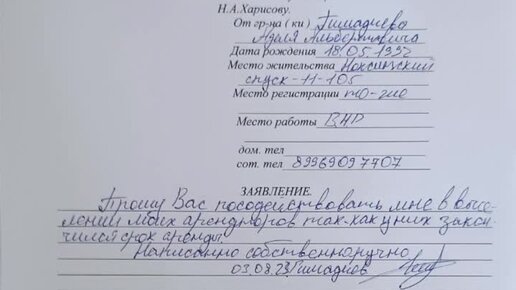 Н.А.Харисову.
От гр-на ( ки ) Гимадиева
Аделя Альбертовича
Дата рождения 18.05.1992
Место жительства Ноксинский
спуск-11-105
Место регистрации то-же
Место работы ВНР
дом. тел
сот. тел 89969097707
ЗАЯВЛЕНИЕ.
Прошу Вас посодействовать мне в высе-
лении моих арендаторов так-как у них закон-
чился срок аренды.
Написанно собственноручно
03.08.23 Гимадиев